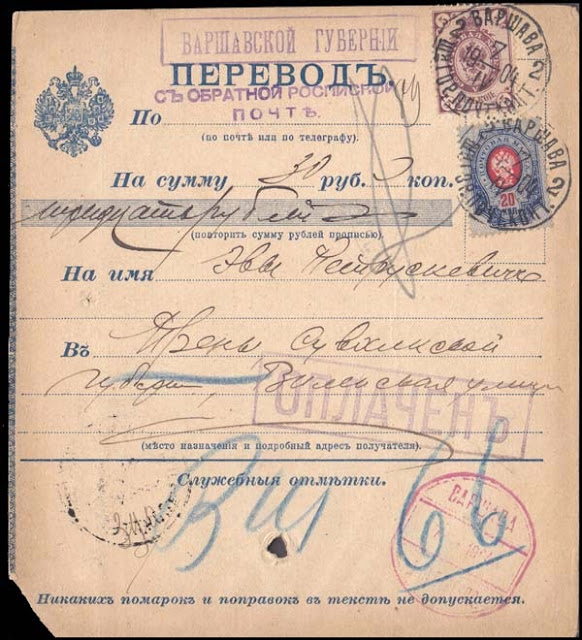 ВАРШАВСКОЙ ГУБЕРНІИ
ПЕРЕВОДЪ
СЪ ОБРАТНОЙ РОСПИСКОЙ
ПОЧТѢ.
По
(по почтѣ или по телеграфу).
На сумму 30 руб. коп.
тридцать рублей
(повторить сумму рублей прописью).
На имя Эвы Петрускевичъ
Въ Сувалкской
губерн, Виленская улица
ОПЛАЧЕНЪ
(мѣсто назначенія и подробный адресъ получателя).
Служебныя отмѣтки.
66
ВАРШАВА
Никакихъ помарокъ и поправокъ въ текстѣ не допускается.
2 ВАРШАВА 2
04
ВАРШАВА 2
04
20